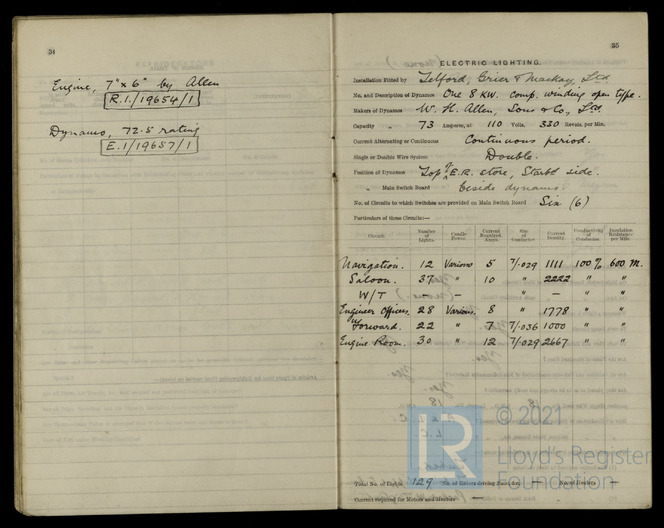 34
Engine, 7" x 6" by Allen
R.1./19654/1
Dynamo, 72.5 rating
E.1/19657/1
35
ELECTRIC LIGHTING.
Installation Fitted by Telford, Grier & Mackay, Ltd
No. and Description of Dynamos One 8 KW. comp. winding open type.
Makers of Dynamos W. H. Allen, Sons & Co., Ltd.
Capacity „ 73 Amperes, at 110 Volts, 330 Revols. per Min.
Current Alternating or Continuous Continuous period.
Single or Double Wire System Double.
Position of Dynamos Top of E.R. store, Starbd side.
„ Main Switch Board beside dynamo.
No. of Circuits to which Switches are provided on Main Switch Board Six (6)
Particulars of these Circuits:—
Circuit. Number of Lights. Candle Power. Current Required. Amps. Size of Conductor. Current Density. Conductivity of Conductor. Insulation Resistance per Mile.
Navigation. 12 Various 5 7/.029 1111 100% 600 M.
Saloon. 37 " 10 " 2222 " "
W/T — — " — " "
Engineer Officers. 28 Various. 8 " 1778 " "
Forward. 22 " 7 7/.036 1000 " "
Engine Room. 30 " 12 7/.029 2667 " "
Total No. of Lights 129 No. of Motors driving Fans, &c. — No. of Heaters —
Current required for Motors and Heaters —
© 2021
LR
Lloyd's Register
Foundation